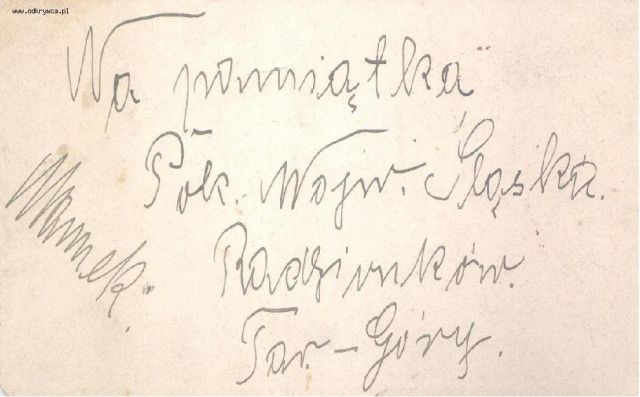 www.odkrywca.pl
Na pamiątkę
Półk. Wojw. Śląska.
Radzionków.
Tar. - Góry.